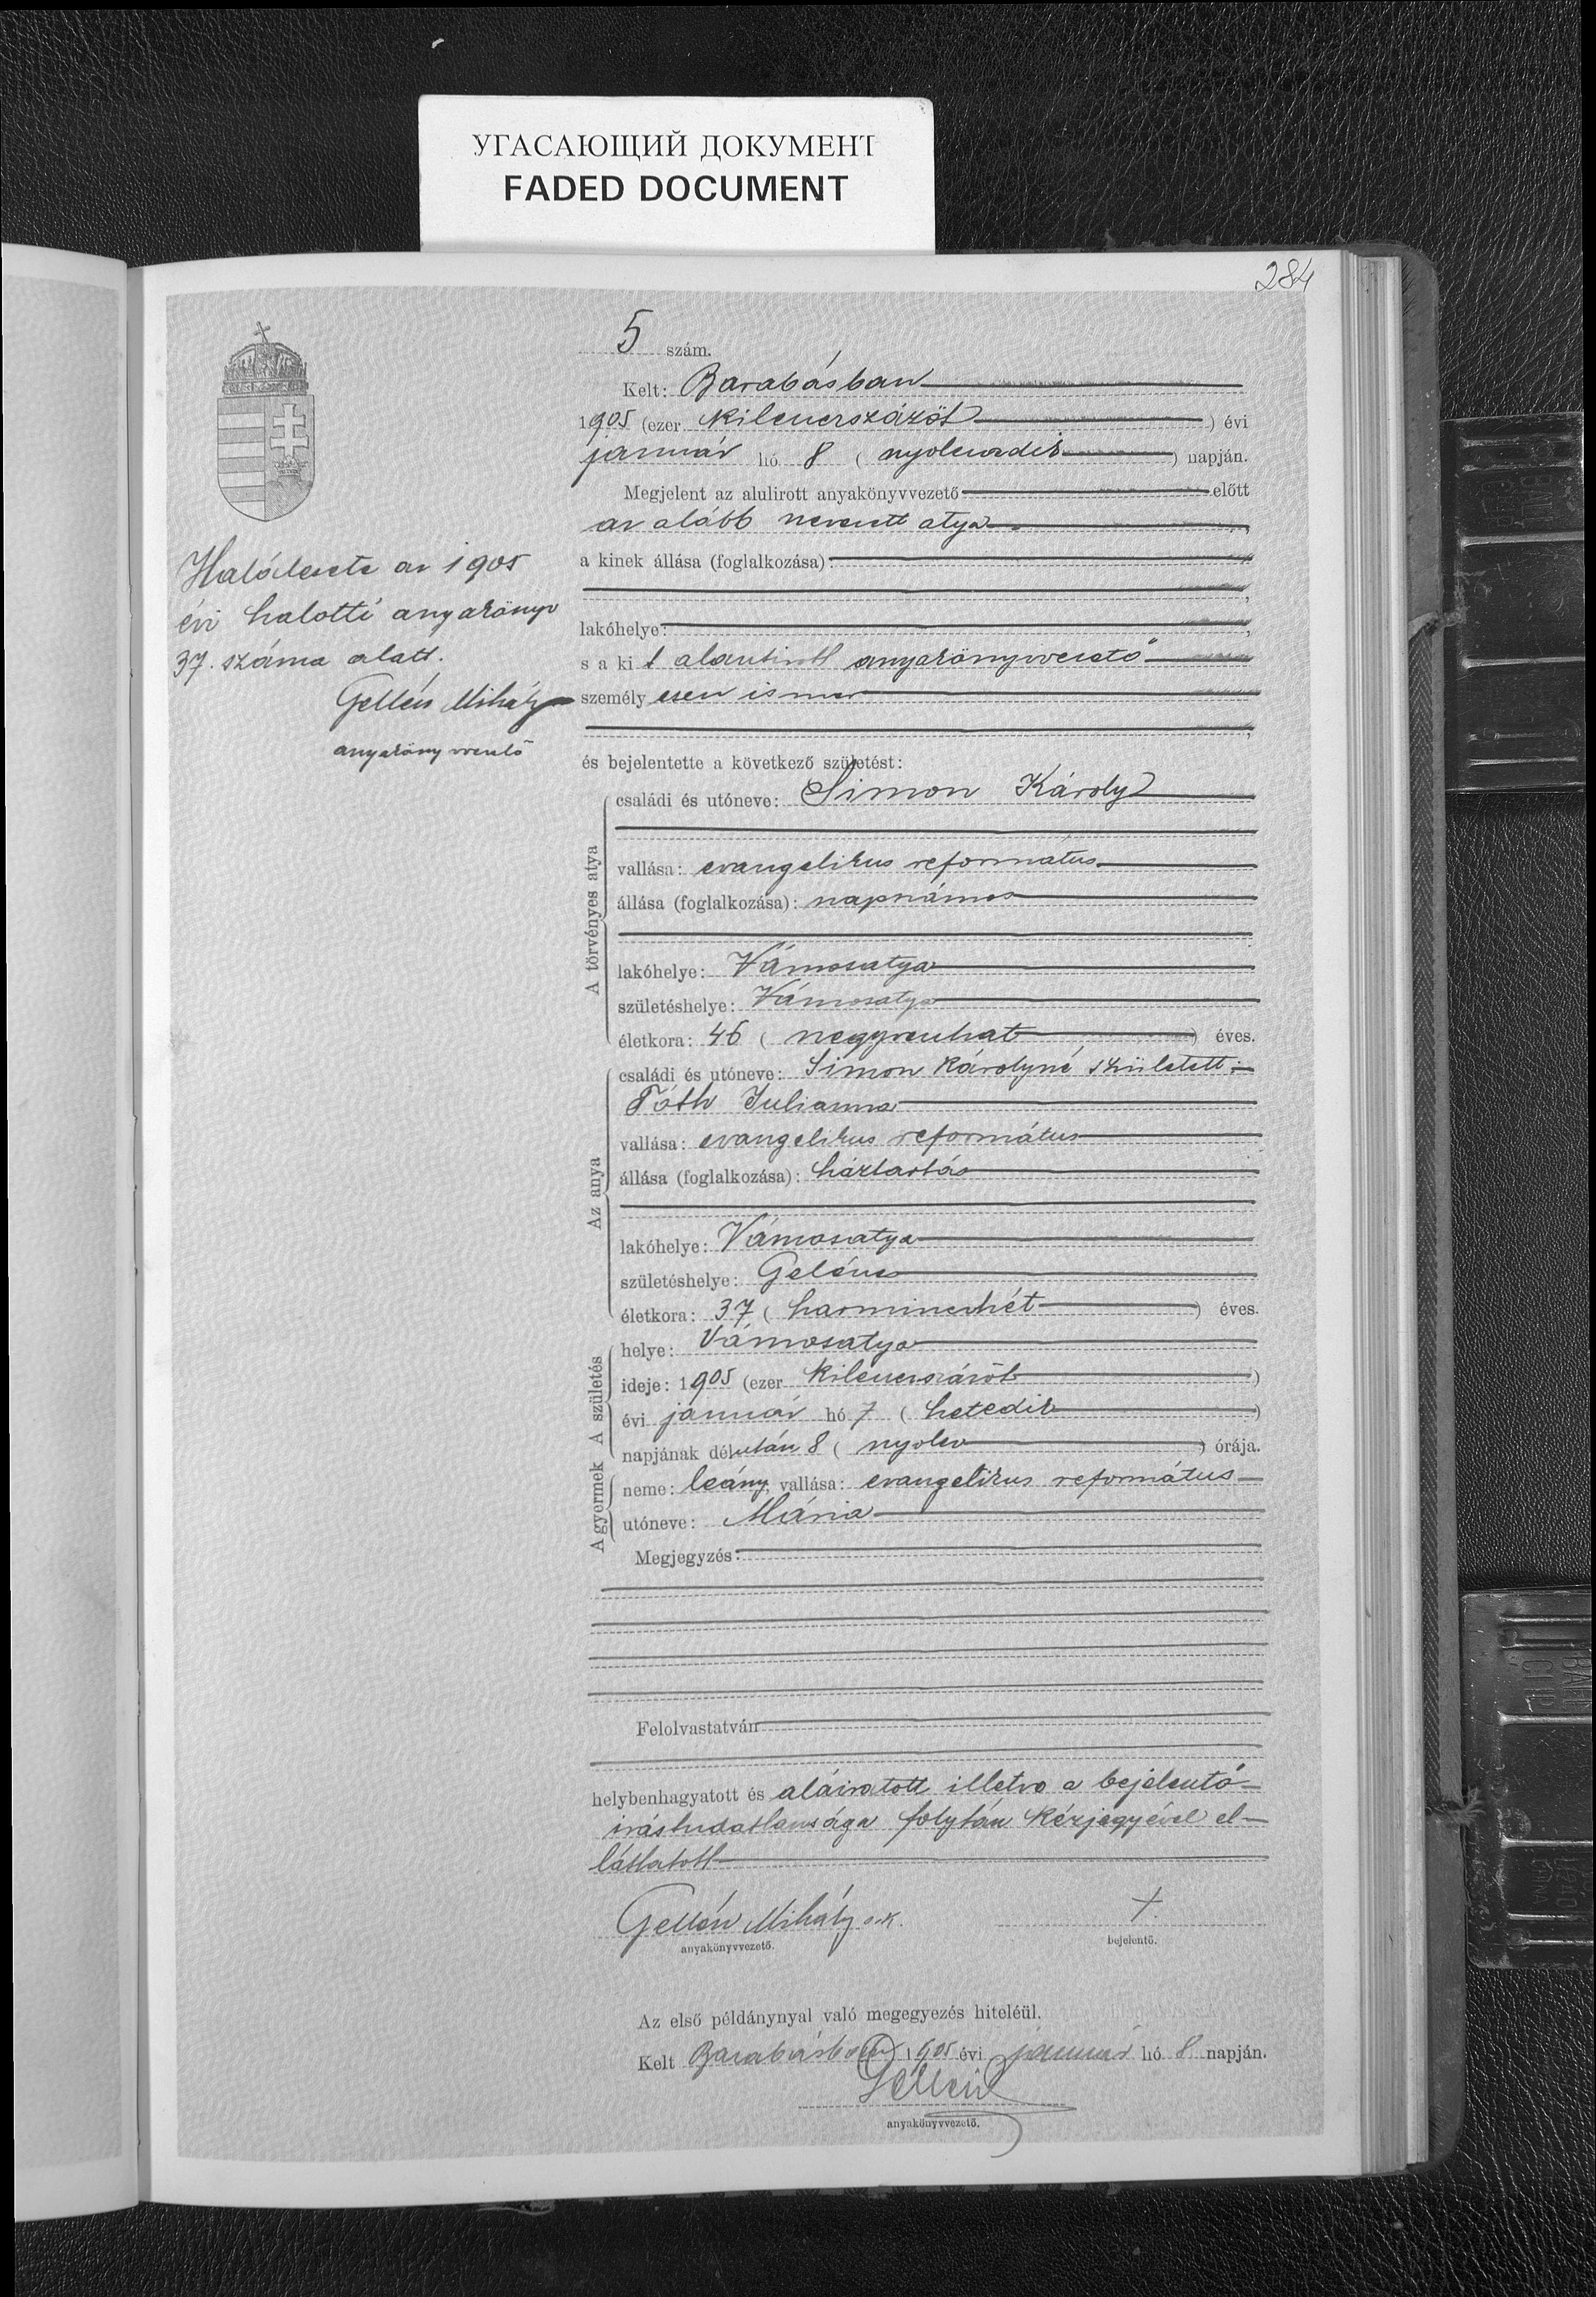 УГАСАЮЩИЙ ДОКУМЕНТ
FADED DOCUMENT
284
5 szám.
Kelt: Barabásban
1905 (ezer kilencszázöt) évi
január hó 8 (nyolcadik) napján.
Megjelent az alulirott anyakönyvvezető előtt
az alább nevezett atya,
a kinek állása (foglalkozása):
lakóhelye:
s a kit alantirott anyakönyvvezető
személyesen ismer
és bejelentette a következő születést:
A törvényes atya
családi és utóneve: Simon Károly
vallása: evangelikus református
állása (foglalkozása): napszámos
lakóhelye: Vámosatya
születéshelye: Vámosatya
életkora: 46 (negyvenhat) éves.
Az anya
családi és utóneve: Simon Károlyné született
Tóth Julianna
vallása: evangelikus református
állása (foglalkozása): háztartás
lakóhelye: Vámosatya
születéshelye: Gelénes
életkora: 37 (harminchét) éves.
A születés
helye: Vámosatya
ideje: 1905 (ezer kilencszázöt)
évi január hó 7 (hetedik)
napjának délután 8 (nyolc) órája.
A gyermek
neme: leány, vallása: evangelikus református
utóneve: Mária
Megjegyzés:
Felolvastatván
helybenhagyatott és aláiratott illetve a bejelentő
irástudatlansága folytán kézjegyével el-
láttatott
Gellén Mihály s.k. +
anyakönyvvezető. bejelentő.
Az első példánynyal való megegyezés hiteléül.
Kelt Barabásban 1905 évi január hó 8 napján.
Gellén
anyakönyvvezető.
Halálesete az 1905
évi halotti anyakönyv
37. száma alatt.
Gellén Mihály
anyakönyvvezető